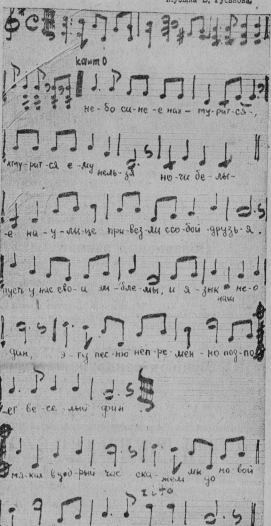 канто
не-бо си-не-е нах-му-рит-ся-,
хму-рит-ся е-му нель-зя но-чи бе-лы-
-е на-у-ли-це при-вез-ли с со-бой друзь-я.
пусть у нас сво-и про-бле-мы, и я-зык не-о
наш
дин, э-ту пес-ню неп-ре-мен-но под-по
-ет ве-се-лый финн
в до-брый час ска-жем мы но-вой